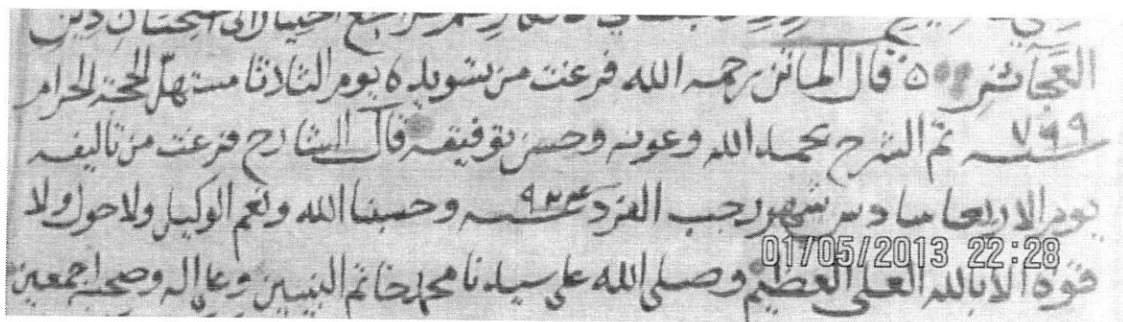 العجائز ٥ قال الماتن رحمه الله فرغت من تسويده يوم الثلاثا مستهل الحجة الحرام
سنة ٧٩٩ تم الشرح بحمد الله وعونه وحسن توفيقه قال الشارح فرغت من تاليفه
يوم الاربعا سادس شهر رجب الفرد سنة ٩٢٤ وحسبنا الله ونعم الوكيل ولا حول ولا
قوة الا بالله العلى العظيم وصلى الله على سيدنا محمد خاتم النبيين وعلى اله وصحبه اجمعين
01/05/2013 22:28